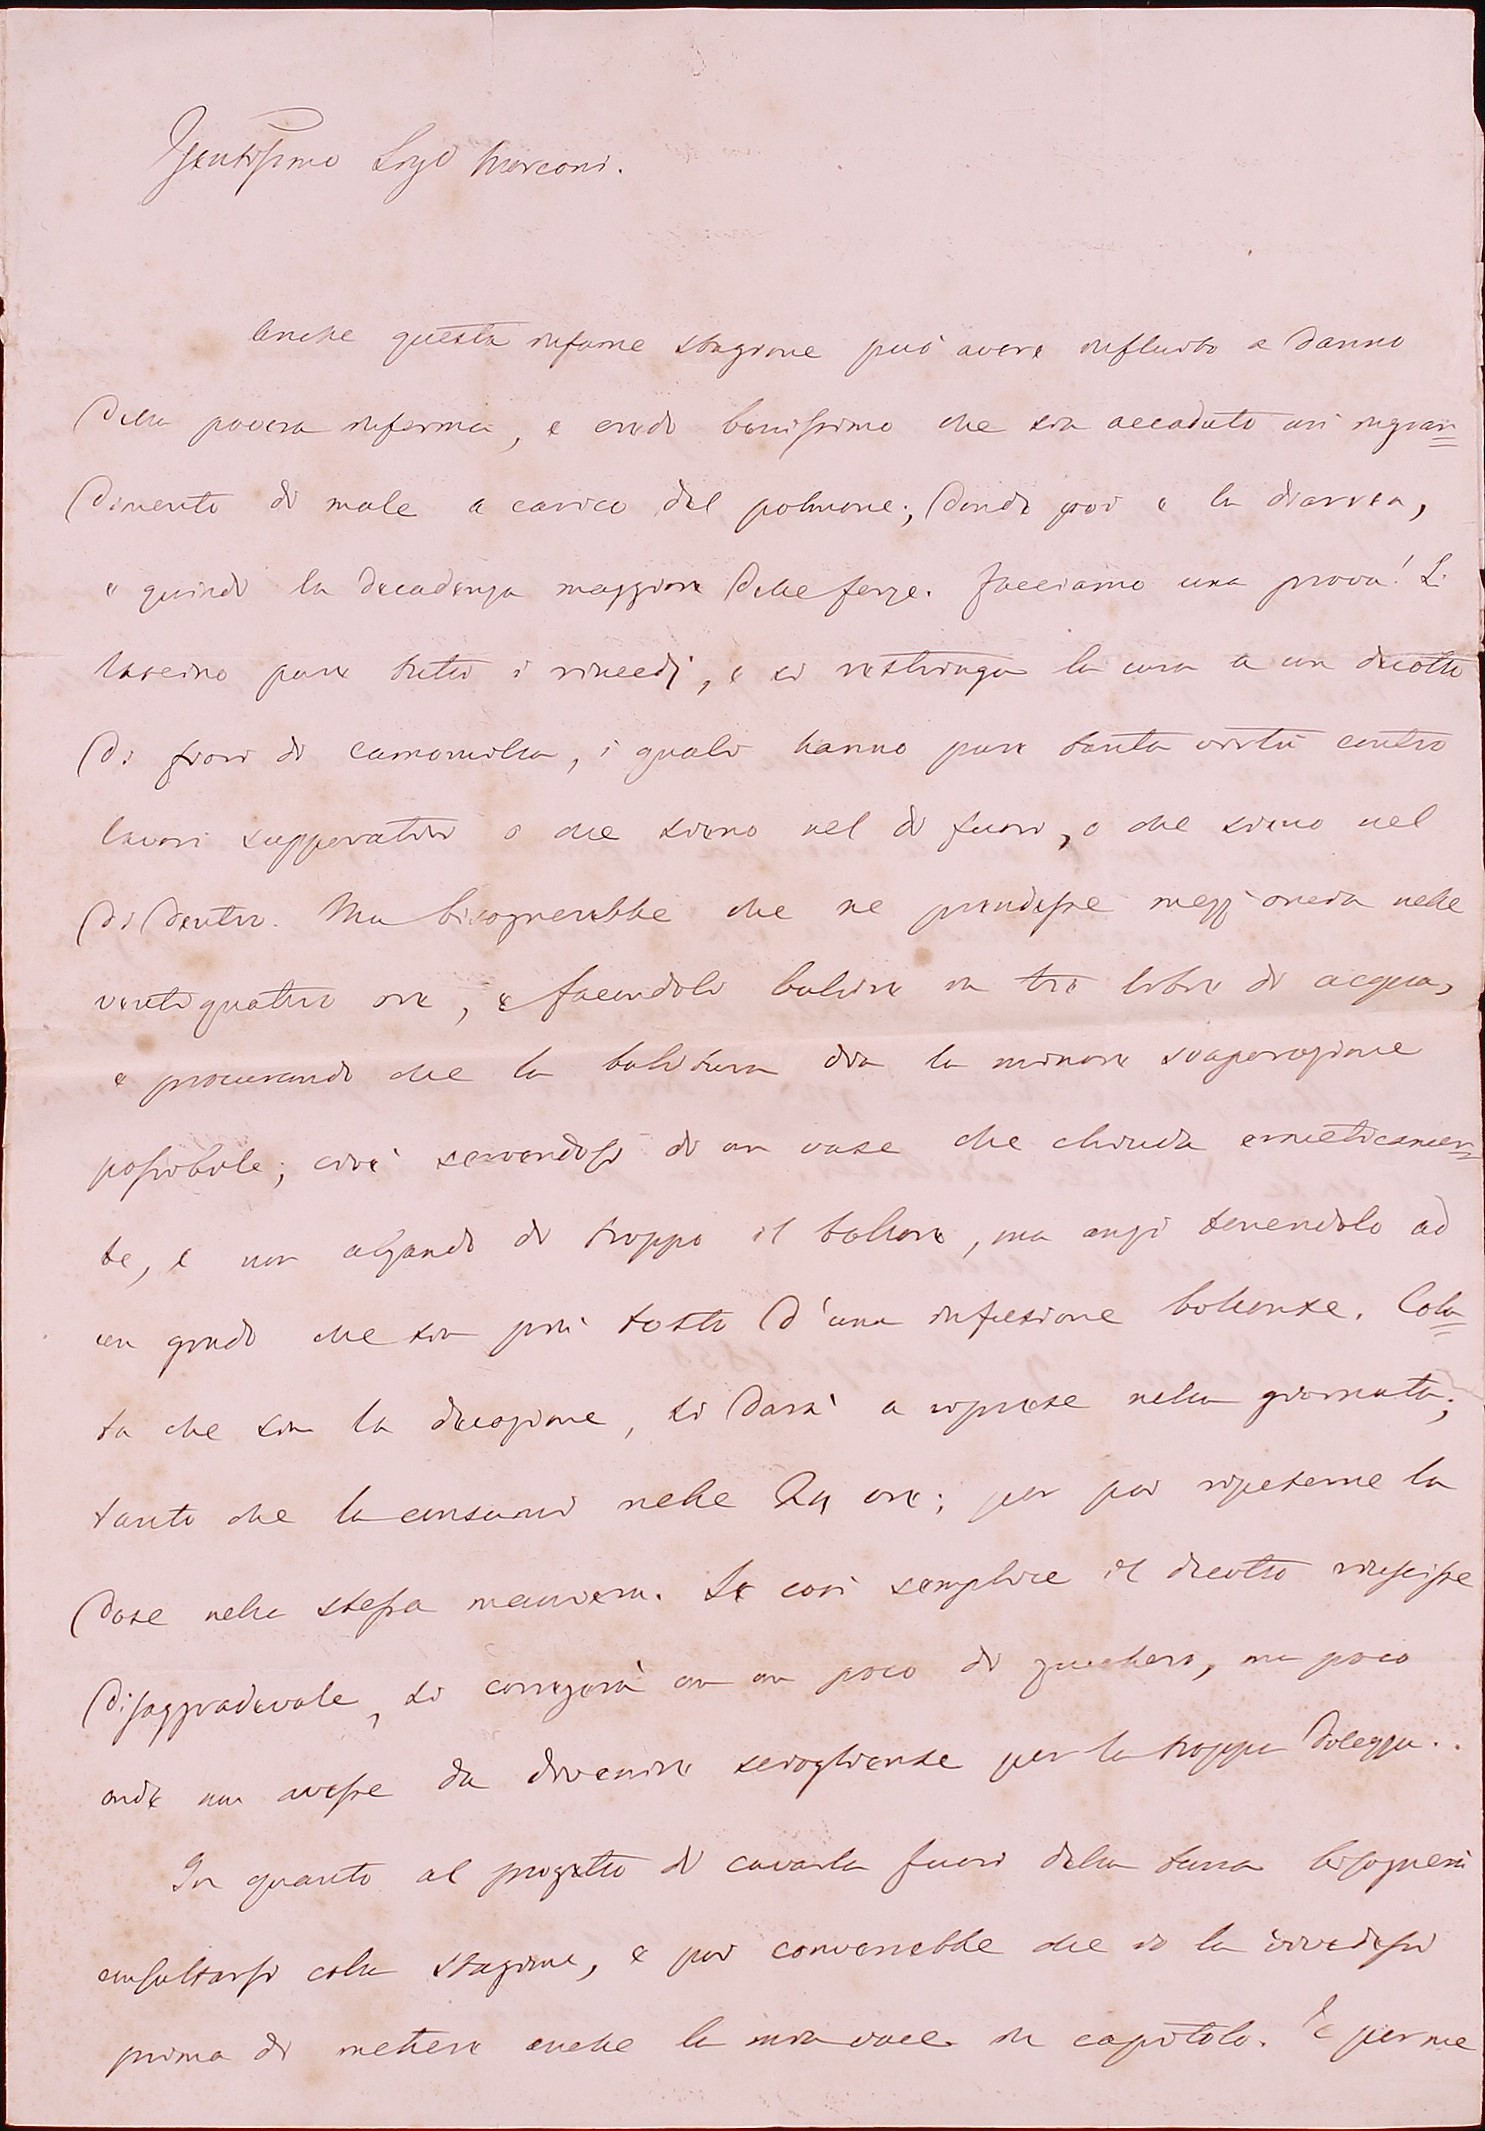 Gentilissimo Sigr Marconi.
Anche questa infame stagione può avere influito a danno
della povera inferma, e credo benissimo che sia accaduto un ingran=
dimento di male a carico del polmone; donde poi e la diarrea,
e quindi la decadenza maggiore delle forze. Facciamo una prova! Si
lascino pure tutti i rimedj, e si restringa la cura a un decotto
di fiori di camomilla, i quali hanno pure tanta virtù contro
lavori suppurativi o che sieno nel di fuori, o che sieno nel
di dentro. Ma bisognerebbe che ne prendesse mezz'oncia nelle
ventiquattro ore, e facendolo bollire in tre libre di acqua,
e procurando che la bollitura dia la minore svaporazione
possibile; cioè servendosi di un vase che chiuda ermeticamen=
te, e non alzando di troppo il bollore, ma anzi tenendolo ad
un grado che sia più tosto d'una infusione bollente. Cola=
ta che sia la decozione, si darà a riprese nella giornata;
tanto che la consumi nelle 24 ore; per poi ripeterne la
dose nella stessa maniera. Se così semplice il decotto riuscisse
disaggradevole, si correggerà con un poco di zucchero, ma poco
onde non avesse da divenire sciogliente per la troppa dolcezza..
In quanto al progetto di cavarla fuori della terra bisognerà
consultarsi colla stagione, e poi converrebbe che io la rivedessi
prima di mettere anche la mia voce in capitolo. È per me